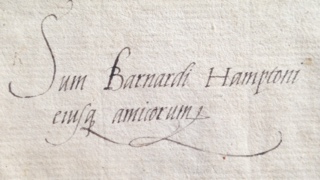 Sum Barnardi Hamptoni
eiusq amicorum